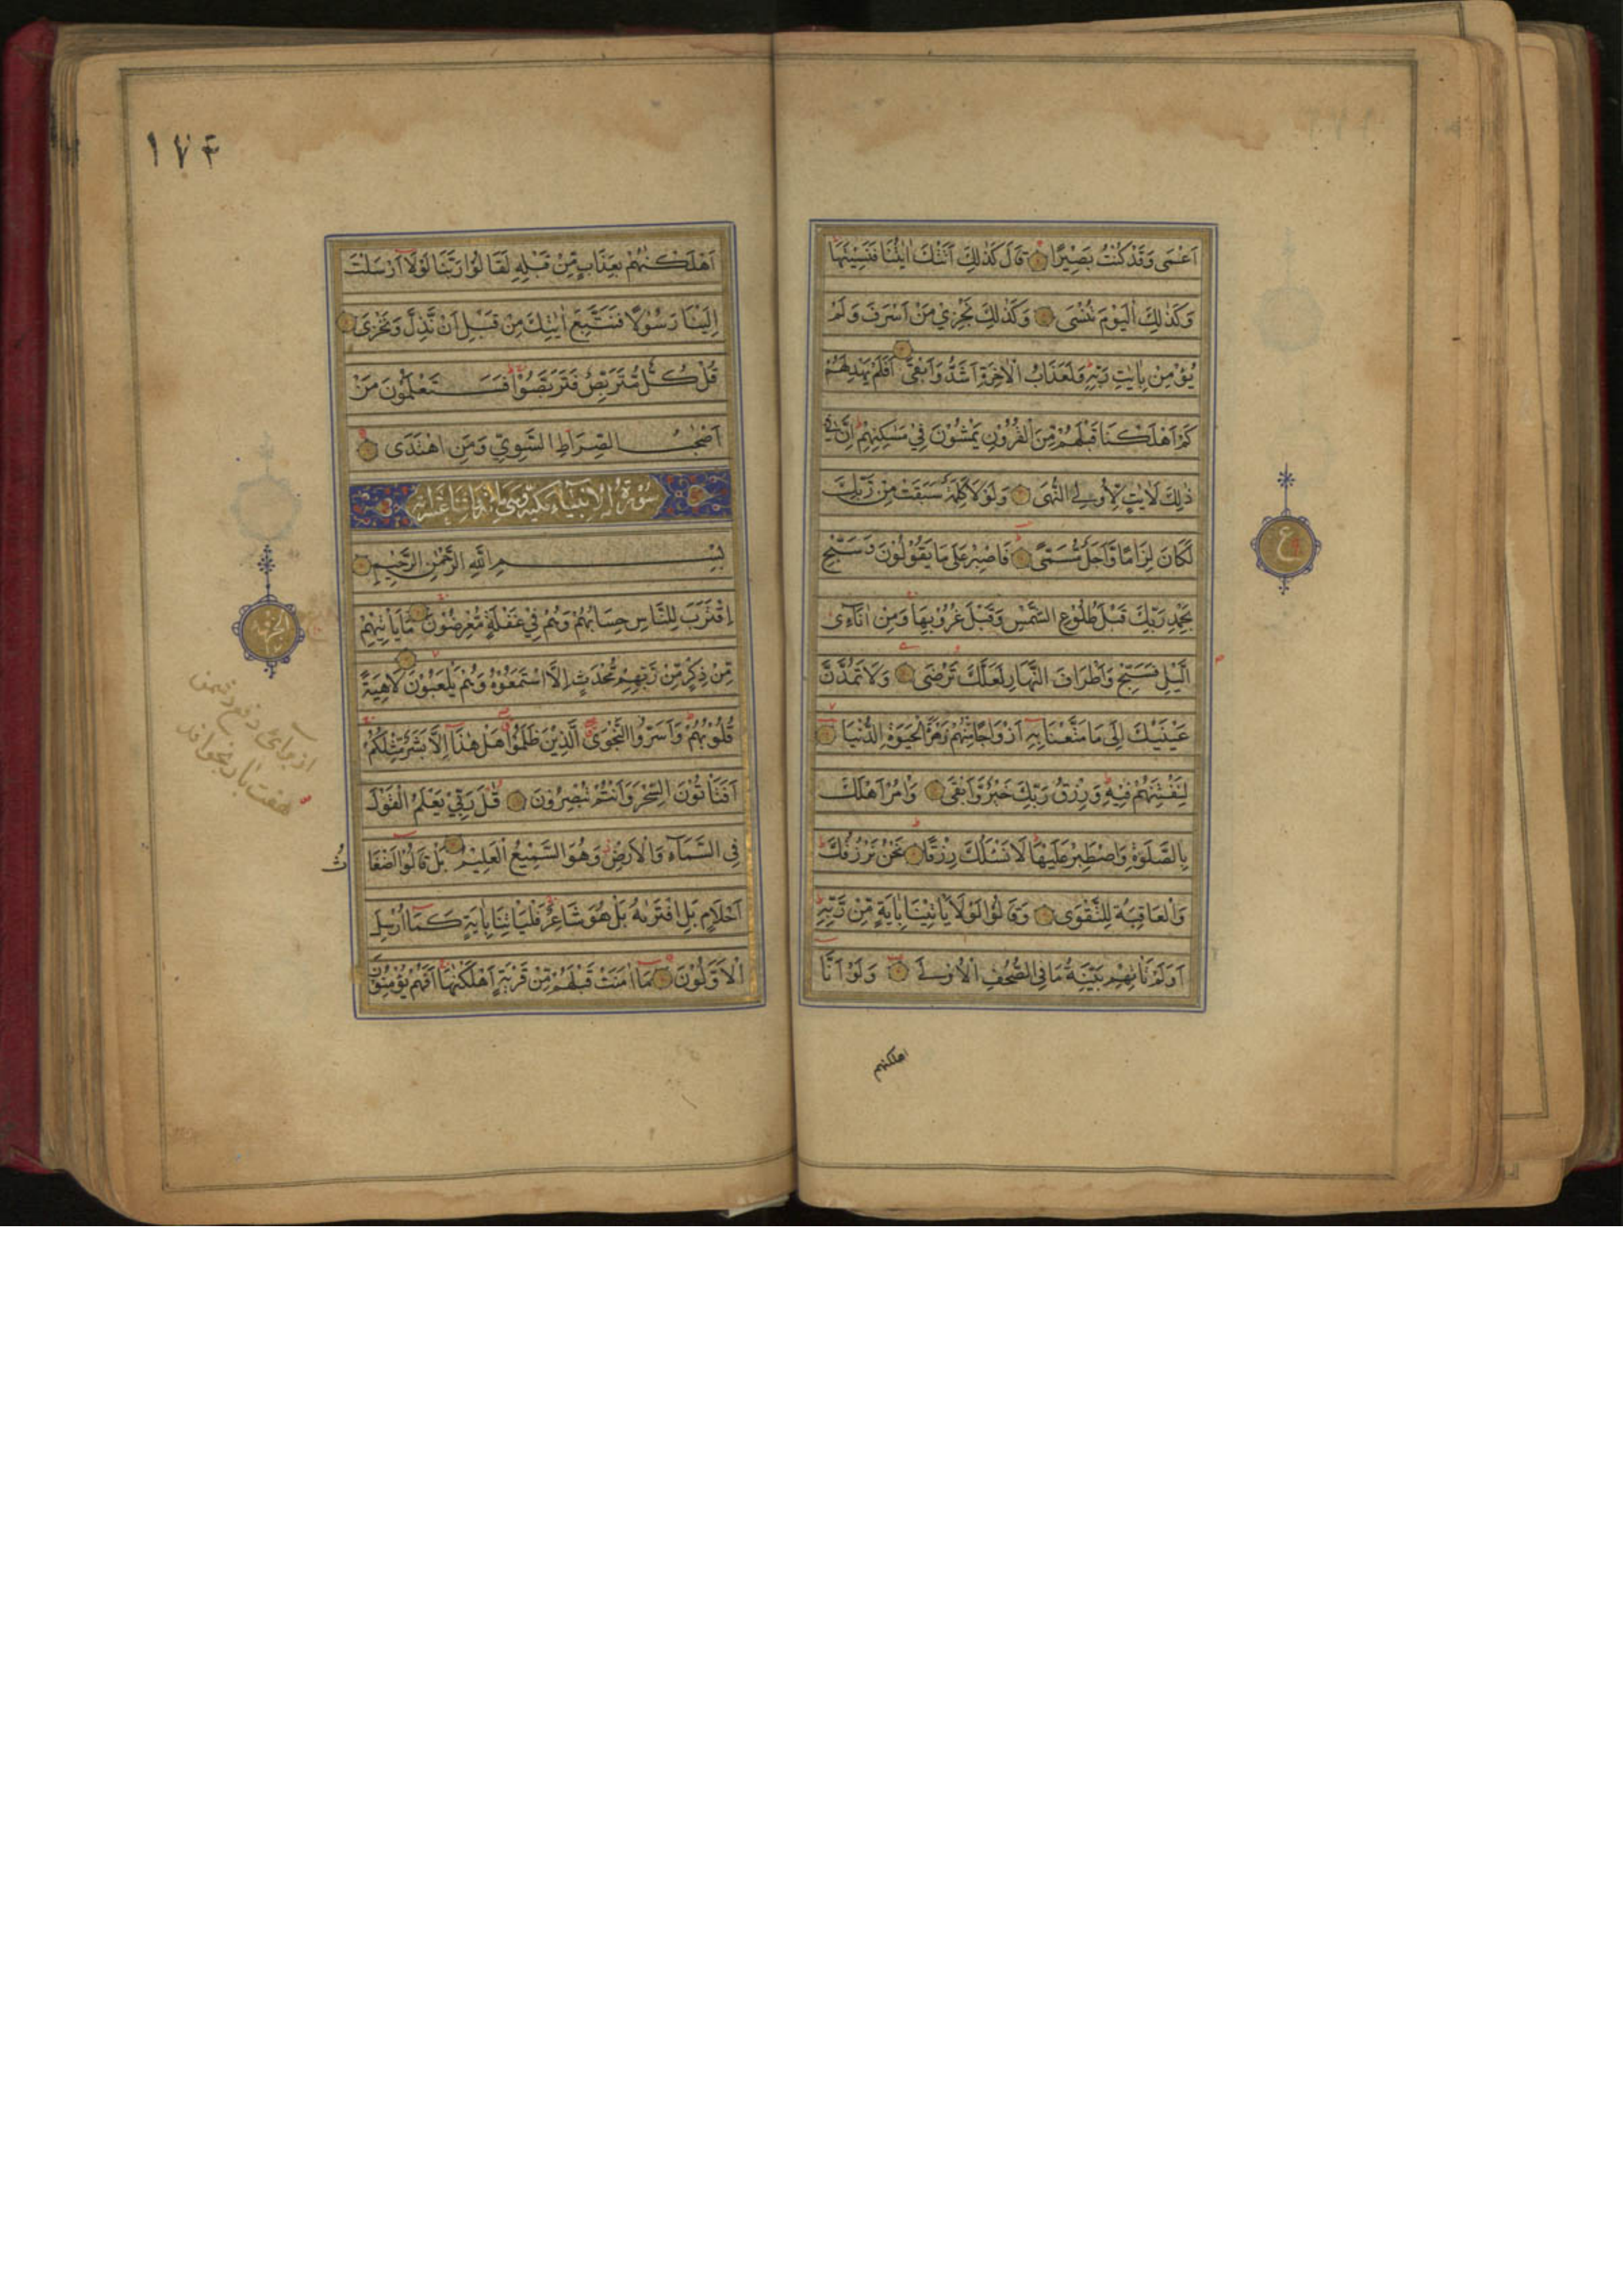 اَعْمٰى وَقَدْ كُنْتُ بَصِيْرًا قَالَ كَذٰلِكَ اَتَتْكَ اٰيٰتُنَا فَنَسِيْتَهَا
وَكَذٰلِكَ الْيَوْمَ تُنْسٰى وَكَذٰلِكَ نَجْزِيْ مَنْ اَسْرَفَ وَلَمْ
يُؤْمِنْ بِاٰيٰتِ رَبِّهٖ وَلَعَذَابُ الْاٰخِرَةِ اَشَدُّ وَاَبْقٰى اَفَلَمْ يَهْدِ لَهُمْ
كَمْ اَهْلَكْنَا قَبْلَهُمْ مِنَ الْقُرُوْنِ يَمْشُوْنَ فِيْ مَسٰكِنِهِمْ اِنَّ فِيْ
ذٰلِكَ لَاٰيٰتٍ لِّاُولِي النُّهٰى وَلَوْلَا كَلِمَةٌ سَبَقَتْ مِنْ رَّبِّكَ
لَكَانَ لِزَامًا وَّاَجَلٌ مُّسَمًّى فَاصْبِرْ عَلٰى مَا يَقُوْلُوْنَ وَسَبِّحْ
بِحَمْدِ رَبِّكَ قَبْلَ طُلُوْعِ الشَّمْسِ وَقَبْلَ غُرُوْبِهَا وَمِنْ اٰنَآئِ
الَّيْلِ فَسَبِّحْ وَاَطْرَافَ النَّهَارِ لَعَلَّكَ تَرْضٰى وَلَا تَمُدَّنَّ
عَيْنَيْكَ اِلٰى مَا مَتَّعْنَا بِهٖ اَزْوَاجًا مِّنْهُمْ زَهْرَةَ الْحَيٰوةِ الدُّنْيَا
لِنَفْتِنَهُمْ فِيْهِ وَرِزْقُ رَبِّكَ خَيْرٌ وَّاَبْقٰى وَاْمُرْ اَهْلَكَ
بِالصَّلٰوةِ وَاصْطَبِرْ عَلَيْهَا لَا نَسْئَلُكَ رِزْقًا نَحْنُ نَرْزُقُكَ
وَالْعَاقِبَةُ لِلتَّقْوٰى وَقَالُوْا لَوْلَا يَاْتِيْنَا بِاٰيَةٍ مِّنْ رَّبِّهٖ
اَوَلَمْ تَاْتِهِمْ بَيِّنَةُ مَا فِي الصُّحُفِ الْاُوْلٰى وَلَوْ اَنَّا
اهلكنهم
ع
١٧٤
اَهْلَكْنٰهُمْ بِعَذَابٍ مِّنْ قَبْلِهٖ لَقَالُوْا رَبَّنَا لَوْلَا اَرْسَلْتَ
اِلَيْنَا رَسُوْلًا فَنَتَّبِعَ اٰيٰتِكَ مِنْ قَبْلِ اَنْ نَّذِلَّ وَنَخْزٰى
قُلْ كُلٌّ مُّتَرَبِّصٌ فَتَرَبَّصُوْا فَسَتَعْلَمُوْنَ مَنْ
اَصْحٰبُ الصِّرَاطِ السَّوِيِّ وَمَنِ اهْتَدٰى
سورة الانبياء مكية وهى مائة واثنا عشراية
بِسْمِ اللّٰهِ الرَّحْمٰنِ الرَّحِيْمِ
اِقْتَرَبَ لِلنَّاسِ حِسَابُهُمْ وَهُمْ فِيْ غَفْلَةٍ مُّعْرِضُوْنَ مَا يَاْتِيْهِمْ
مِّنْ ذِكْرٍ مِّنْ رَّبِّهِمْ مُّحْدَثٍ اِلَّا اسْتَمَعُوْهُ وَهُمْ يَلْعَبُوْنَ لَاهِيَةً
قُلُوْبُهُمْ وَاَسَرُّوا النَّجْوَى الَّذِيْنَ ظَلَمُوْا هَلْ هٰذَا اِلَّا بَشَرٌ مِّثْلُكُمْ
اَفَتَاْتُوْنَ السِّحْرَ وَاَنْتُمْ تُبْصِرُوْنَ قٰلَ رَبِّيْ يَعْلَمُ الْقَوْلَ
فِي السَّمَآءِ وَالْاَرْضِ وَهُوَ السَّمِيْعُ الْعَلِيْمُ بَلْ قَالُوْا اَضْغَا
ثُ
اَحْلَامٍ بَلِ افْتَرٰىهُ بَلْ هُوَ شَاعِرٌ فَلْيَاْتِنَا بِاٰيَةٍ كَمَا اُرْسِلَ
الْاَوَّلُوْنَ مَا اٰمَنَتْ قَبْلَهُمْ مِّنْ قَرْيَةٍ اَهْلَكْنٰهَا اَفَهُمْ يُؤْمِنُوْنَ
الجزء
از برائ دفع دشمن
هفت بار بخواند